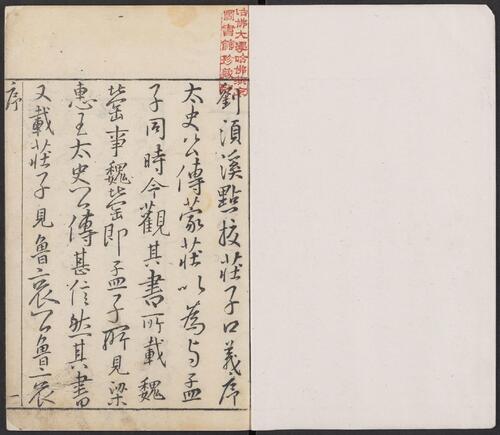 哈佛大學哈佛燕京
圖書館珍藏印
劉須溪點校莊子口義序
太史公傳蒙莊以為與孟
子同時今觀其書所載魏
瑩事魏瑩即孟子所見梁
惠王太史公傳甚信然其書
又載莊子見魯哀公魯哀
序
一